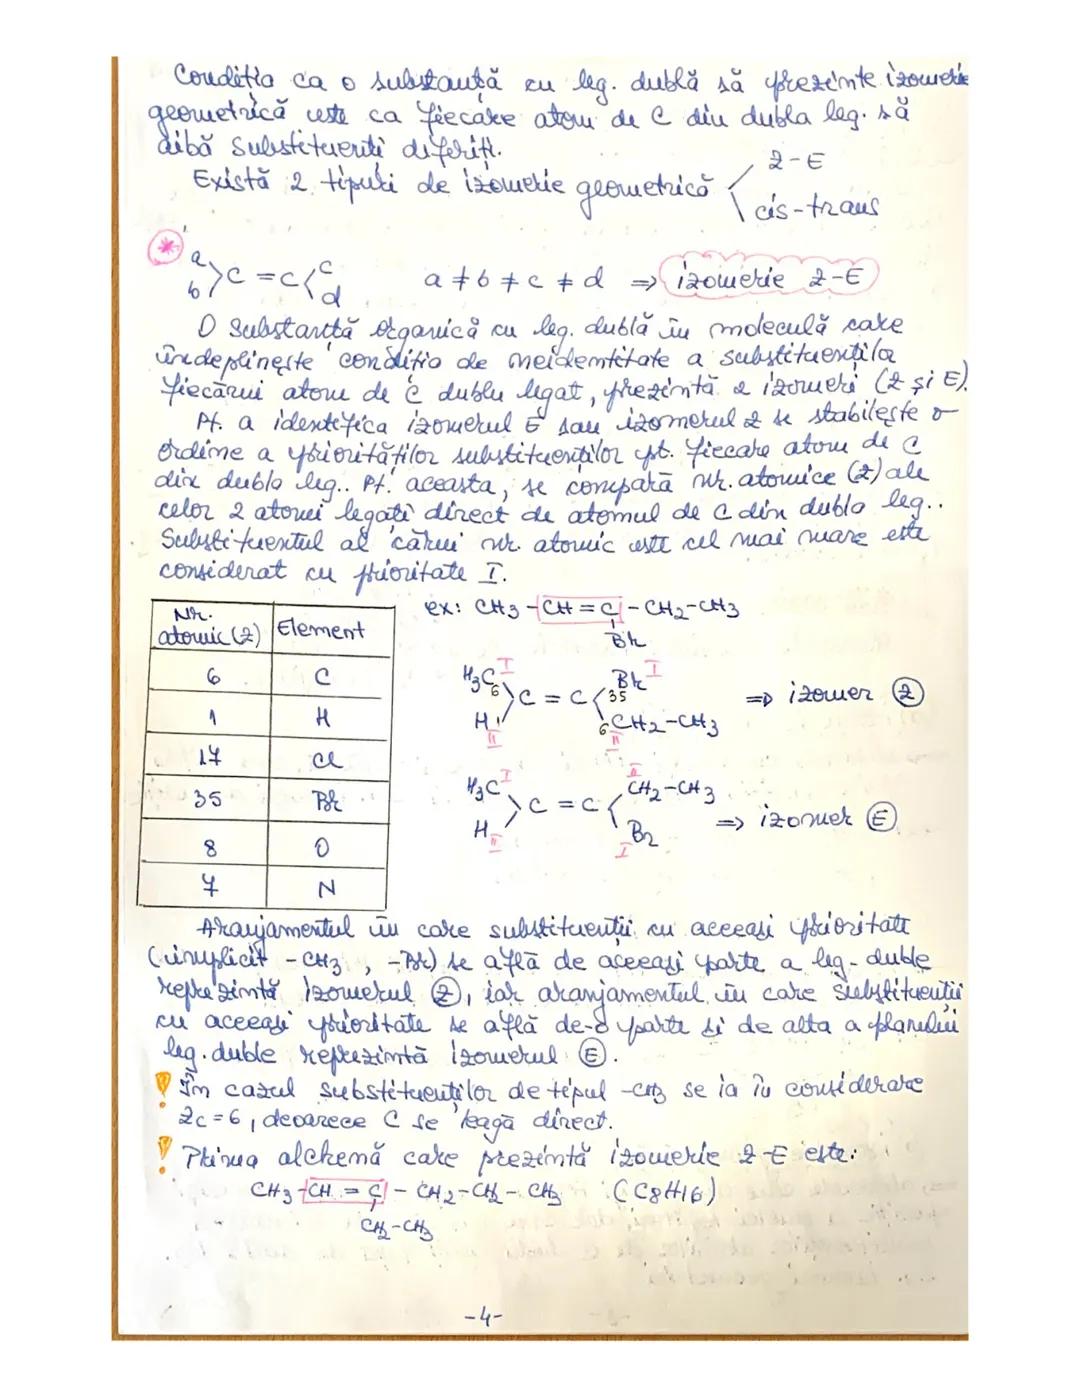 Condiția ca o substanță cu leg. dublă să prezinte izomerie
geometrică este ca fiecare atom de C din dubla leg. să
aibă substituenți diferiți.
Există 2 tipuri de izomerie geometrică
Z-E
cis-trans
*
a c
b >C=C< d
a ≠ b ≠ c ≠ d => izomerie Z-E
O substanță organică cu leg. dublă în moleculă care
îndeplinește condiția de neidentitate a substituenților
fiecărui atom de C dublu legat, prezintă 2 izomeri (Z și E).
Pt. a identifica izomerul E sau izomerul Z se stabilește o
ordine a priorităților substituenților pt. fiecare atom de C
din dubla leg.. Pt. aceasta, se compară nr. atomice (Z) ale
celor 2 atomi legați direct de atomul de C din dubla leg..
Substituentul al cărui nr. atomic este cel mai mare este
considerat cu prioritate I.
Nr. atomic (Z) Element
6 C
1 H
17 Cl
35 Br
8 O
7 N
ex: CH3-CH=C-CH2-CH3
Br
H3C I 6 Br I 35
C = C => izomer Z
H 1 II 6 CH2-CH3 II
H3C I CH2-CH3 II
C = C => izomer E
H II Br I
Aranjamentul în care substituenții cu aceeași prioritate
(inimplicit -CH3, -Br) se află de aceeași parte a leg. duble
reprezintă izomerul Z, iar aranjamentul în care substituenții
cu aceeași prioritate se află de-o parte și de alta a planului
leg. duble reprezintă izomerul E.
! În cazul substituenților de tipul -CH3 se ia în considerare
Zc=6, deoarece C se leagă direct.
! Prima alchenă care prezintă izomerie Z-E este:
CH3-CH=C-CH2-CH2-CH3 (C8H16)
CH2-CH3
-4-